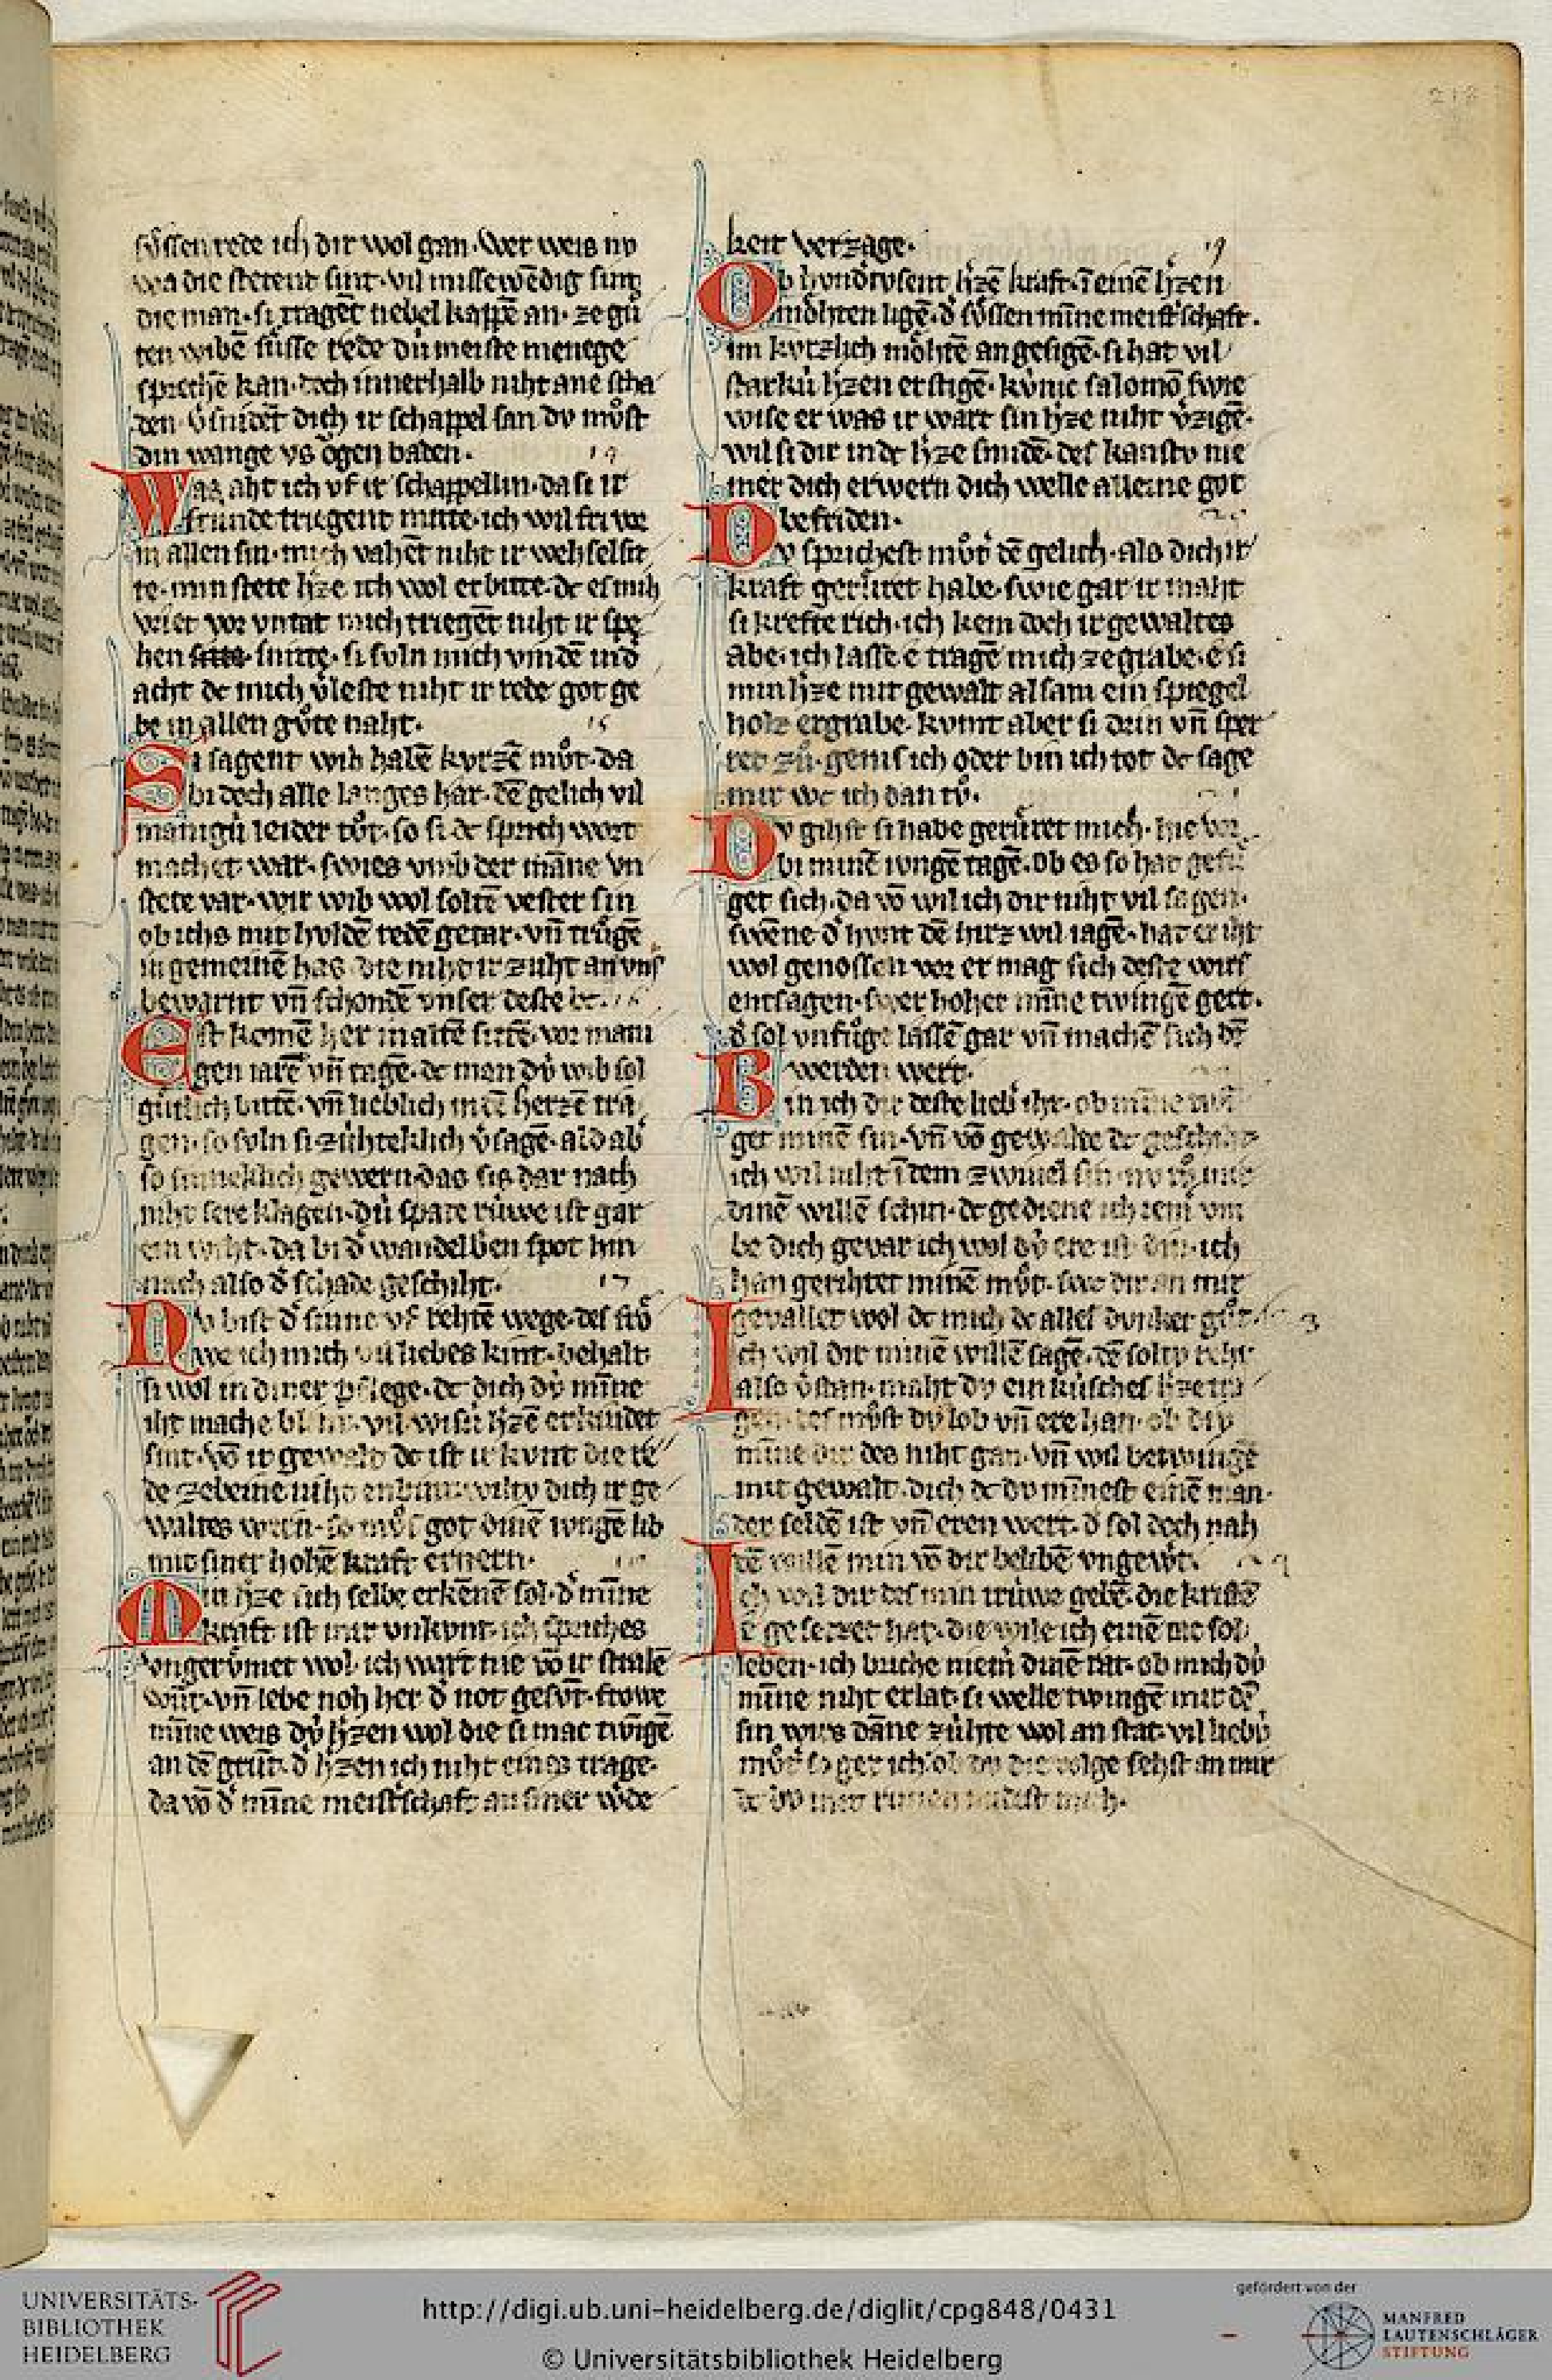 218
sv̊ssen rede ich dir wol gan. Wer weis nv
wa die stetent sint. vil missewēdig sint
die man. si tragēt nebel kappē an. ze gů
ten wibē sůsse rede dú meiste menege
sprechē kan. doch innerhalb niht ane scha
den v̾snidēt dich ir schappel san dv můst
din wange vs ǒgen baden.
Waz aht ich vf ir schappellin. da si ir
frúnde triegent mitte. ich wil fri vor
in allen sin. mich vahēt niht ir wehselsit
te. min stete h̾ze ich wol erbitte. dc es mih
vrist vor vntat mich triegēt niht ir spe
hen sitte. snitte. si svln mich vindē in d̾
acht dc mich v̾leite niht ir rede got ge
be in allen gůte naht.
Si sagent wib habē kvrzē můt. da
bi doch alle langes har. dē gelich vil
manigú leider tůt. so si dc sprich wort
machet war. swies vmb der māne vn
stete var. wir wib wol soltē vester sin
ob ichs mit hvldē redē getar. vn̄ trůgē
in gemeinē has. die niht ir zuht an vns
bewarnt vn̄ schondē vnser deste bc.
Est komē her in altē sittē. vor mani
gen iarē vn̄ tagē. dc man dú wib sol
gůtlich bittē. vn̄ lieblich in dē herzē tra
gen. so svln si zúhteklich v̾sagē. ald ab̾
so sinneklich gewern. das sis dar nach
niht sere klagen. dú spate rúwe ist gar
ein wiht. da bi d̾ wandelb̾en spot hin
nach also d̾ schade geschiht.
Nv bist d̾ sinne vf rehtē wege. des frǒ
we ich mich vil liebes kint. behalt
si wol in diner pflege. dc dich dú minne
iht mache blint. vil wisú h̾zē erkúndet
sint. vō ir gewalt dc ist ir kvnt die re
de ze beine niht enbint. wiltv dich ir ge
waltes wern. so můs got dinē ivngē lib
mit siner hohē kraft ernern.
Min h̾ze sich selbe erkēnē sol. d̾ minne
kraft ist mir vnkvnt. ich spriches
vngerv̊met wol. ich wart nie vō ir stralē
wūt. vn̄ lebe noh her d̾ not gesvt̄. frowe
minne weis dú h̾zen wol die si mac twīgē
an dē grūt. d̾ h̾zen ich niht eines trage.
da vō d̾ minne meist̾schaft an siner w̾de
keit verzage.
Ob hvnd̾tvsent h̾zē kraft. ī einē h̾zen
mohten ligē. d̾ sv̊ssen minne meist̾schaft.
im kvrzlich mohte angesigē. si hat vil
starkú h̾zen erstigē. kv́nic salomō swie
wise er was ir wart sin h̾ze niht v̾zigē.
wil si dir in dc h̾ze snidē. des kanstv nie
mer dich erwern dich welle alleine got
befriden.
Dv sprichest můt̾ dē gelich. als dich ir
kraft gerůret habe. swie gar ir maht
si krefte rich. ich kem doch ir gewaltes
abe. ich lasse e tragē mich ze grabe. e si
min h̾ze mit gewalt alsam ein spiegel
holz ergrabe. kvmt aber si drin vn̄ sper
ret zů. genis ich oder bin ich tot dc sage
mir wc ich dan tů.
Dv gihst si habe gerůret mich. hie vor
bi minē ivngē tagē. ob es so hat gefů
get sich. da vō wil ich dir niht vil sagen.
swēne d̾ hvnt dē hirz wil iagē. hat er iht
wol genossen vor er mag sich deste wirs
entsagen. swer hoher minne twingē gert.
d̾ sol vnfůge lassē gar vn̄ machē sich dē
werden wert.
Bin ich dir deste lieb̾ iht. ob minne
get minē sin. vn̄ vō gewalte dc geschiht
ich wil niht ī dem zwiuel sin.
dinē willē schin. dc gediene ich iem̾ vm
be dich gevar ich wol dú ere ist din. ich
han gerihtet minē můt. swc dir an mir
gevallet wol dc mich dc alles dvnket gůt.
Ich wil dir minē willē sagē. dē soltv reht
also v̾stan. maht dv ein kúsches h̾ze tra
gen. des můst dv lob vn̄ ere han. ob dú
minne dir des niht gan. vn̄ wil betwingē
mit gewalt. dich dc dv minnest einē man.
der seldē ist vn̄ eren wert. d̾ sol doch nah
dē willē min vō dir belibē vngew̾t.
Ich wil dir des min trúwe gebē. die kristē
e gesetzet hat. die wile ich einē tac sol
leben. ich briche niem̾ dinē rat. ob mich dú
minne niht erlat. si welle twingē mit dē
sin wirs dāne zúhte wol an stat. vil liebú
můt̾ so ger ich. ob dv die volge sehst an mir
UNIVERSITÄTS-
BIBLIOTHEK
HEIDELBERG
http://digi.ub.uni-heidelberg.de/diglit/cpg848/0431
© Universitätsbibliothek Heidelberg
gefördert von der
MANFRED
LAUTENSCHLÄGER
STIFTUNG